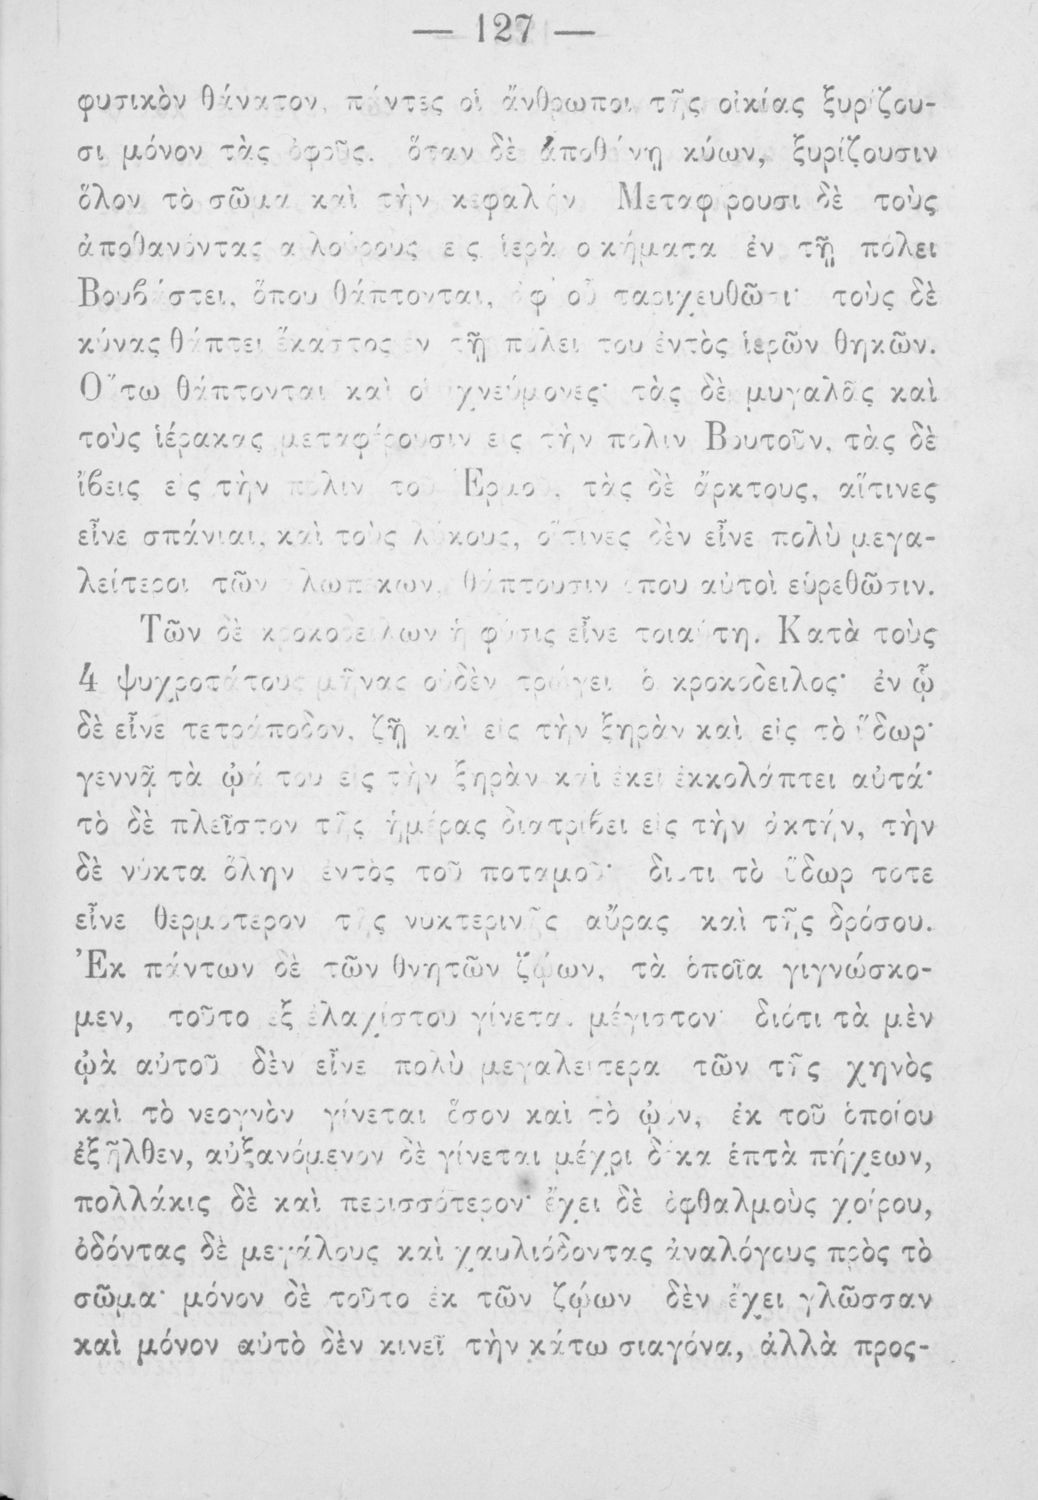 — 127 —
φυσικὸν θάνατον, πάντες οἱ ἄνθρωποι τῆς οἰκίας ξυρίζου-
σι μόνον τὰς ὀφρῦς. ὅταν δὲ ἀποθάνῃ κύων, ξυρίζουσιν
ὅλον τὸ σῶμα καὶ τὴν κεφαλήν Μεταφέρουσι δὲ τοὺς
ἀποθανόντας αἰλούρους εἰς ἱερὰ οἰκήματα ἐν τῇ πόλει
Βουβάστει, ὅπου θάπτονται, ἀφ' οὗ ταριχευθῶσι· τοὺς δὲ
κύνας θάπτει ἕκαστος ἐν τῇ πόλει του ἐντὸς ἱερῶν θηκῶν.
Οὕτω θάπτονται καὶ οἱ ἰχνεύμονες· τὰς δὲ μυγαλᾶς καὶ
τοὺς ἱέρακας μεταφέρουσιν εἰς τὴν πόλιν Βουτοῦν, τὰς δὲ
ἴβεις εἰς τὴν πόλιν τοῦ Ἑρμοῦ, τὰς δὲ ἄρκτους, αἵτινες
εἶνε σπάνιαι, καὶ τοὺς λύκους, οἵτινες δὲν εἶνε πολὺ μεγα-
λείτεροι τῶν ἀλωπέκων, θάπτουσιν ὅπου αὐτοὶ εὑρεθῶσιν.
Τῶν δὲ κροκοδείλων ἡ φύσις εἶνε τοιαύτη. Κατὰ τοὺς
4 ψυχροτάτους μῆνας οὐδὲν τρώγει ὁ κροκόδειλος· ἐν ᾧ
δὲ εἶνε τετράποδον, ζῇ καὶ εἰς τὴν ξηρὰν καὶ εἰς τὸ ὕδωρ·
γεννᾷ τὰ ᾠά του εἰς τὴν ξηρὰν καὶ ἐκεῖ ἐκκολάπτει αὐτά·
τὸ δὲ πλεῖστον τῆς ἡμέρας διατρίβει εἰς τὴν ἀκτήν, τὴν
δὲ νύκτα ὅλην ἐντὸς τοῦ ποταμοῦ· διότι τὸ ὕδωρ τότε
εἶνε θερμότερον τῆς νυκτερινῆς αὔρας καὶ τῆς δρόσου.
Ἐκ πάντων δὲ τῶν θνητῶν ζῴων, τὰ ὁποῖα γιγνώσκο-
μεν, τοῦτο ἐξ ἐλαχίστου γίνεται μέγιστον· διότι τὰ μὲν
ᾠὰ αὐτοῦ δὲν εἶνε πολὺ μεγαλείτερα τῶν τῆς χηνὸς
καὶ τὸ νεογνὸν γίνεται ὅσον καὶ τὸ ᾠόν, ἐκ τοῦ ὁποίου
ἐξῆλθεν, αὐξανόμενον δὲ γίνεται μέχρι δέκα ἑπτὰ πήχεων,
πολλάκις δὲ καὶ περισσότερον· ἔχει δὲ ὀφθαλμοὺς χοίρου,
ὀδόντας δὲ μεγάλους καὶ χαυλιόδοντας ἀναλόγους πρὸς τὸ
σῶμα· μόνον δὲ τοῦτο ἐκ τῶν ζῴων δὲν ἔχει γλῶσσαν
καὶ μόνον αὐτὸ δὲν κινεῖ τὴν κάτω σιαγόνα, ἀλλὰ προς-